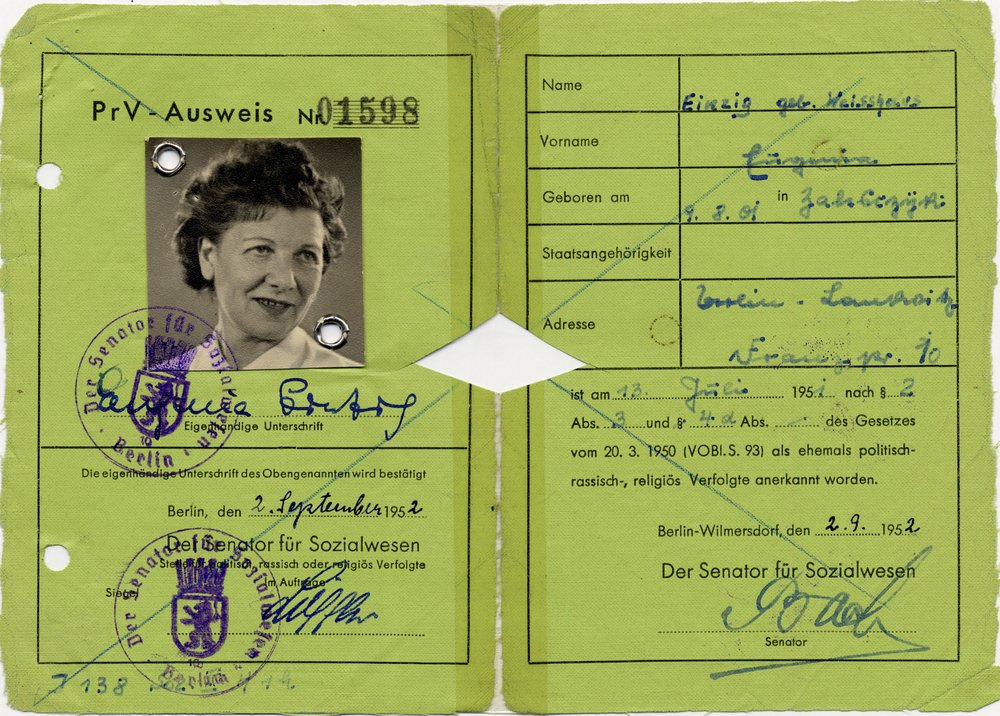 PrV - Ausweis Nr. 01598
Der Senator für Sozialwesen
Berlin
Eigenhändige Unterschrift
Die eigenhändige Unterschrift des Obengenannten wird bestätigt
Berlin, den 2. September 1952
Der Senator für Sozialwesen
Stelle für politisch, rassisch oder religiös Verfolgte
Im Auftrage
Siegel
Der Senator für Sozialwesen
Berlin
Name Einzig geb.
Vorname Eugenia
Geboren am 9. 8. 01 in
Staatsangehörigkeit
Berlin - Lankwitz
Adresse
10
ist am 13. Juli 1951 nach § 2
Abs. 3 und § 4d Abs. - des Gesetzes
vom 20. 3. 1950 (VOBl. S. 93) als ehemals politisch-
rassisch-, religiös Verfolgte anerkannt worden.
Berlin-Wilmersdorf, den 2.9. 1952
Der Senator für Sozialwesen
Senator